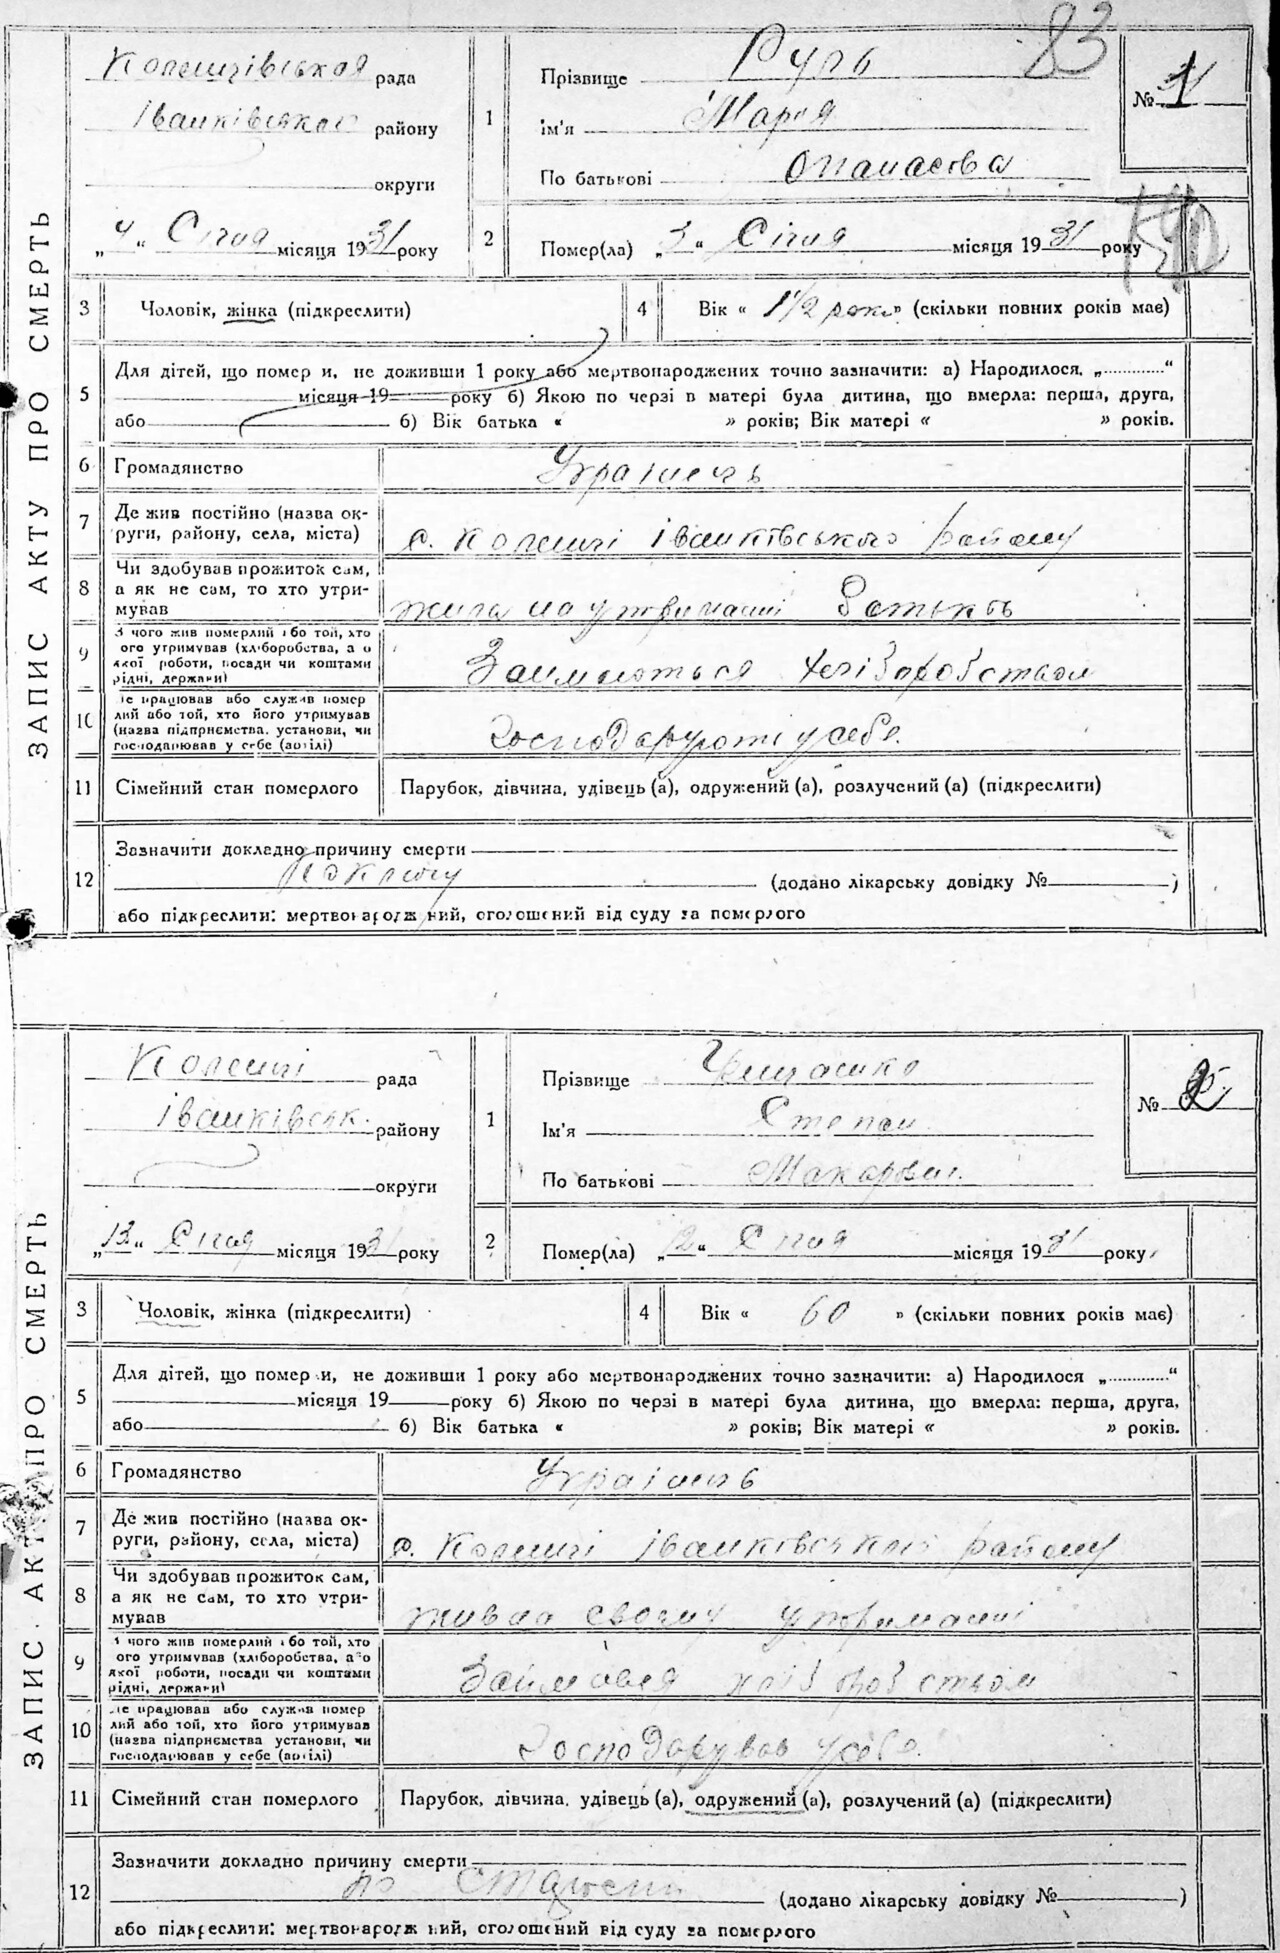 83
ЗАПИС АКТУ ПРО СМЕРТЬ
Коленцівська рада
Іванківського району
округи
„4“ Січня місяця 1931 року
1
Прізвище Руль
ім'я Марія
По батькові Опанасова
№ 1
2
Помер(ла) „3“ Січня місяця 1931 року
3
Чоловік, жінка (підкреслити)
4
Вік « 1 1/2 роки » (скільки повних років має)
5
Для дітей, що помер и, не доживши 1 року або мертвонароджених точно зазначити: а) Народилося „............“
місяця 19 року б) Якою по черзі в матері була дитина, що вмерла: перша, друга,
або 6) Вік батька « » років; Вік матері « » років.
6
Громадянство Українець
7
Де жив постійно (назва ок-
руги, району, села, міста)
с. Коленці Іванківського району
8
Чи здобував прожиток сам,
а як не сам, то хто утри-
мував
жила на утриманні батьків
9
З чого жив померлий або той, хто
ого утримував (хліборобства, а о
якої роботи, посади чи коштами
рідні, держави)
Займаються хліборобством
10
е працював або служив помер
лий або той, хто його утримував
(назва підприємства, установи, чи
господарював у себе (артілі)
Господарують у себе.
11
Сімейний стан померлого
Парубок, дівчина, удівець (а), одружений (а), розлучений (а) (підкреслити)
12
Зазначити докладно причину смерти
(додано лікарську довідку № )
або підкреслити: мертвонародж ний, оголошений від суду за померлого
ЗАПИС АКТУ ПРО СМЕРТЬ
Коленці рада
Іванківськ. району
округи
„13“ Січня місяця 1931 року
1
Прізвище
Ім'я Степан
По батькові Макарович
№ 2
2
Помер(ла) „12“ Січня місяця 1931 року
3
Чоловік, жінка (підкреслити)
4
Вік « 60 » (скільки повних років має)
5
Для дітей, що помер и, не доживши 1 року або мертвонароджених точно зазначити: а) Народилося „............“
місяця 19 року б) Якою по черзі в матері була дитина, що вмерла: перша, друга,
або 6) Вік батька « » років; Вік матері « » років.
6
Громадянство Українець
7
Де жив постійно (назва ок-
руги, району, села, міста)
с. Коленці Іванківського району
8
Чи здобував прожиток сам,
а як не сам, то хто утри-
мував
жив на своєму утриманні
9
чого жив померлий або той, хто
ого утримував (хліборобства, а о
якої роботи, посади чи коштами
рідні, держави)
Займався хліборобством
10
е працював або служив помер
лий або той, хто його утримував
(назва підприємства установи, чи
господарював у себе (артілі)
Господарував у себе.
11
Сімейний стан померлого
Парубок, дівчина, удівець (а), одружений (а), розлучений (а) (підкреслити)
12
Зазначити докладно причину смерти
по старости
(додано лікарську довідку № )
або підкреслити: мертвонародж ний, оголошений від суду за померлого